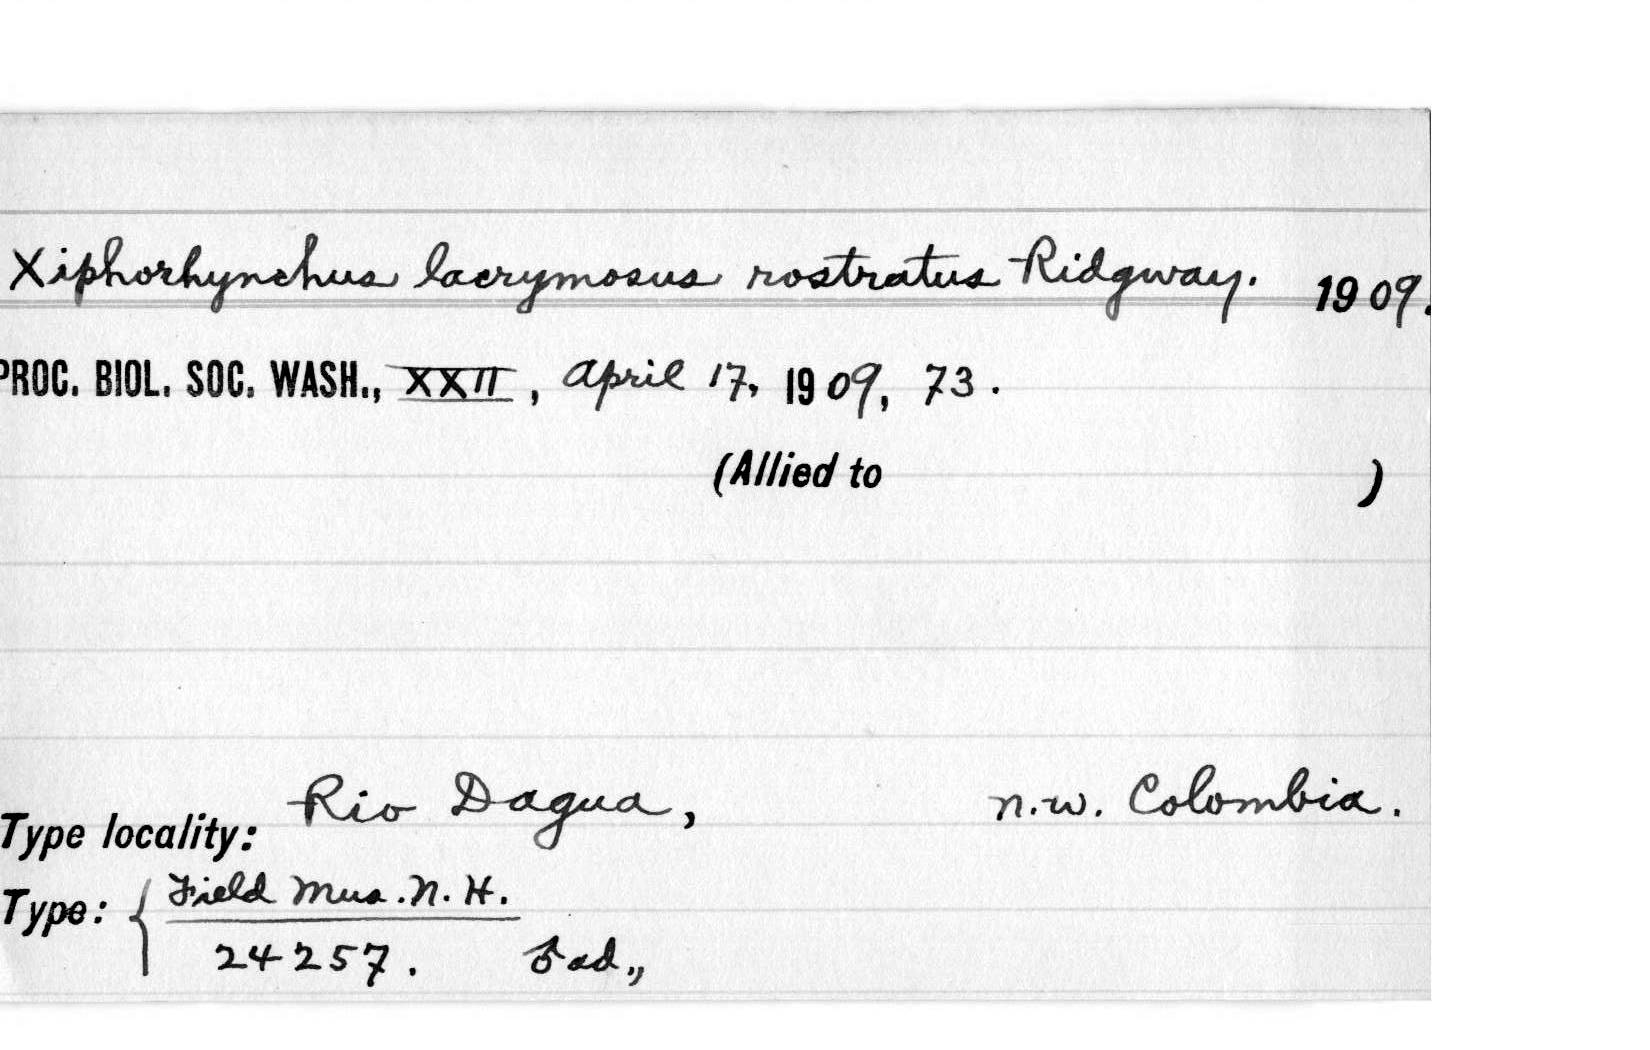 Xiphorhynchus lacrymosus rostratus Ridgway. 1909.
PROC. BIOL. SOC. WASH., XXII, April 17, 1909, 73.
(Allied to )
Type locality: Rio Dagua, n.w. Colombia.
Type: { Field Mus. N. H.
24257. ♂ ad.,